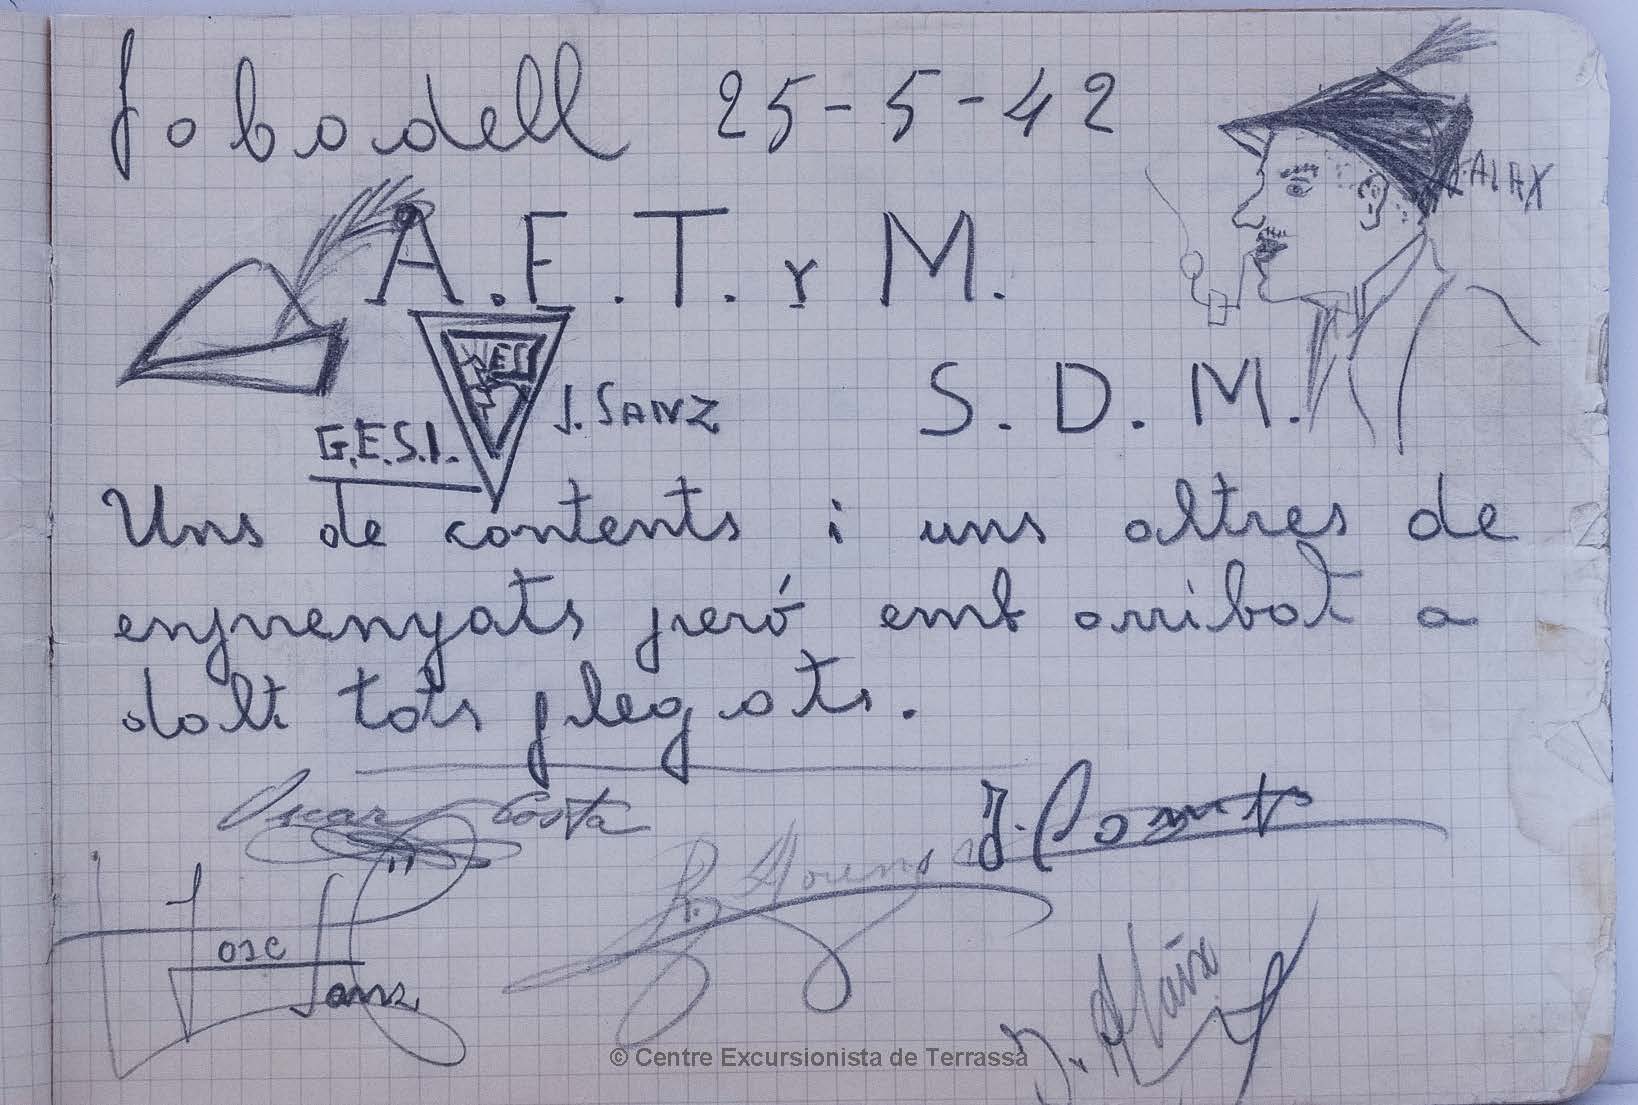 Sabadell 25-5-42
ALAX
A.E.T. y M.
S.D.M.
J. SANZ
G.E.S.I.
Uns de contents i uns altres de
enprenyats peró emb arribat a
dalt tots plegats.
Oscar Costa
J.
R. Moreno
Jose Sanz
J. Alaix
© Centre Excursionista de Terrassa